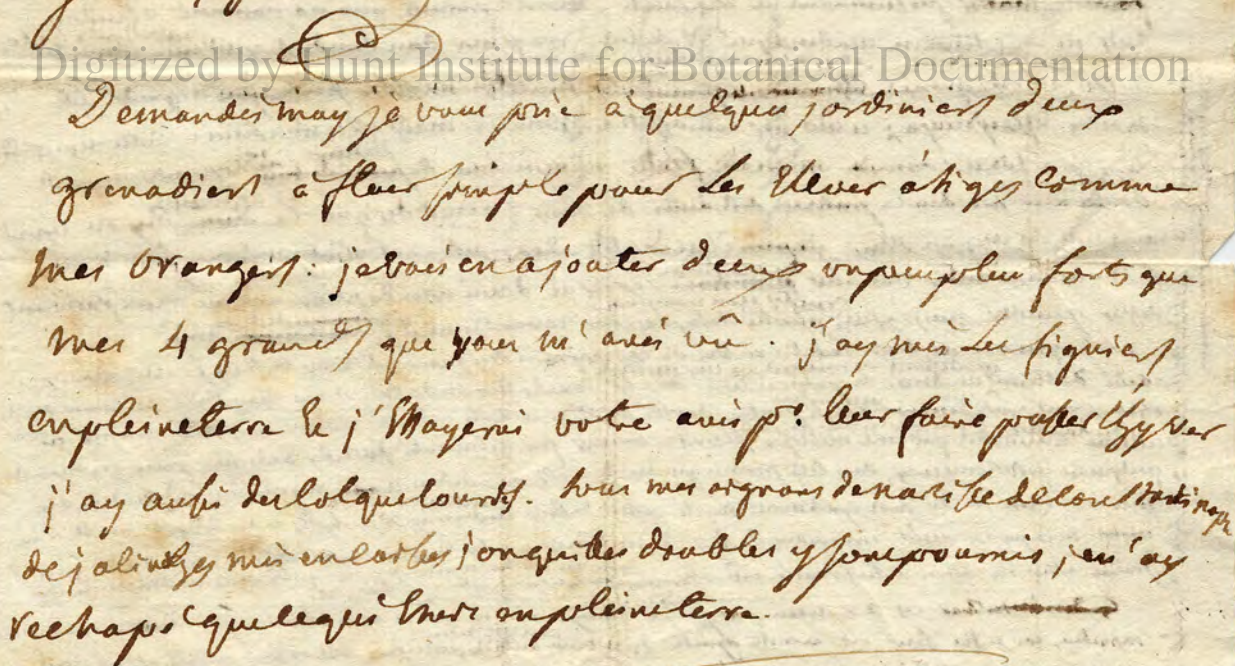 Digitized by Hunt Institute for Botanical Documentation
Demandés moy je vous prie a quelques jardiniers deux
grenadiers à fleur simple pour les Elever à tiges comme
mes Orangers. je vais en ajouter deux un peu plus forts que
mes 4 grands que vous m'avés vû. j'ay mis les figuiers
en pleine terre & j'Essayerai votre avis pr. leur faire passer l'hyver
j'ay aussi des Colquelourdes. tous mes oignons de narcisse de Constantinople
de jonquilles doubles y sont pourris, j en'ay
rechapé que en pleine terre.